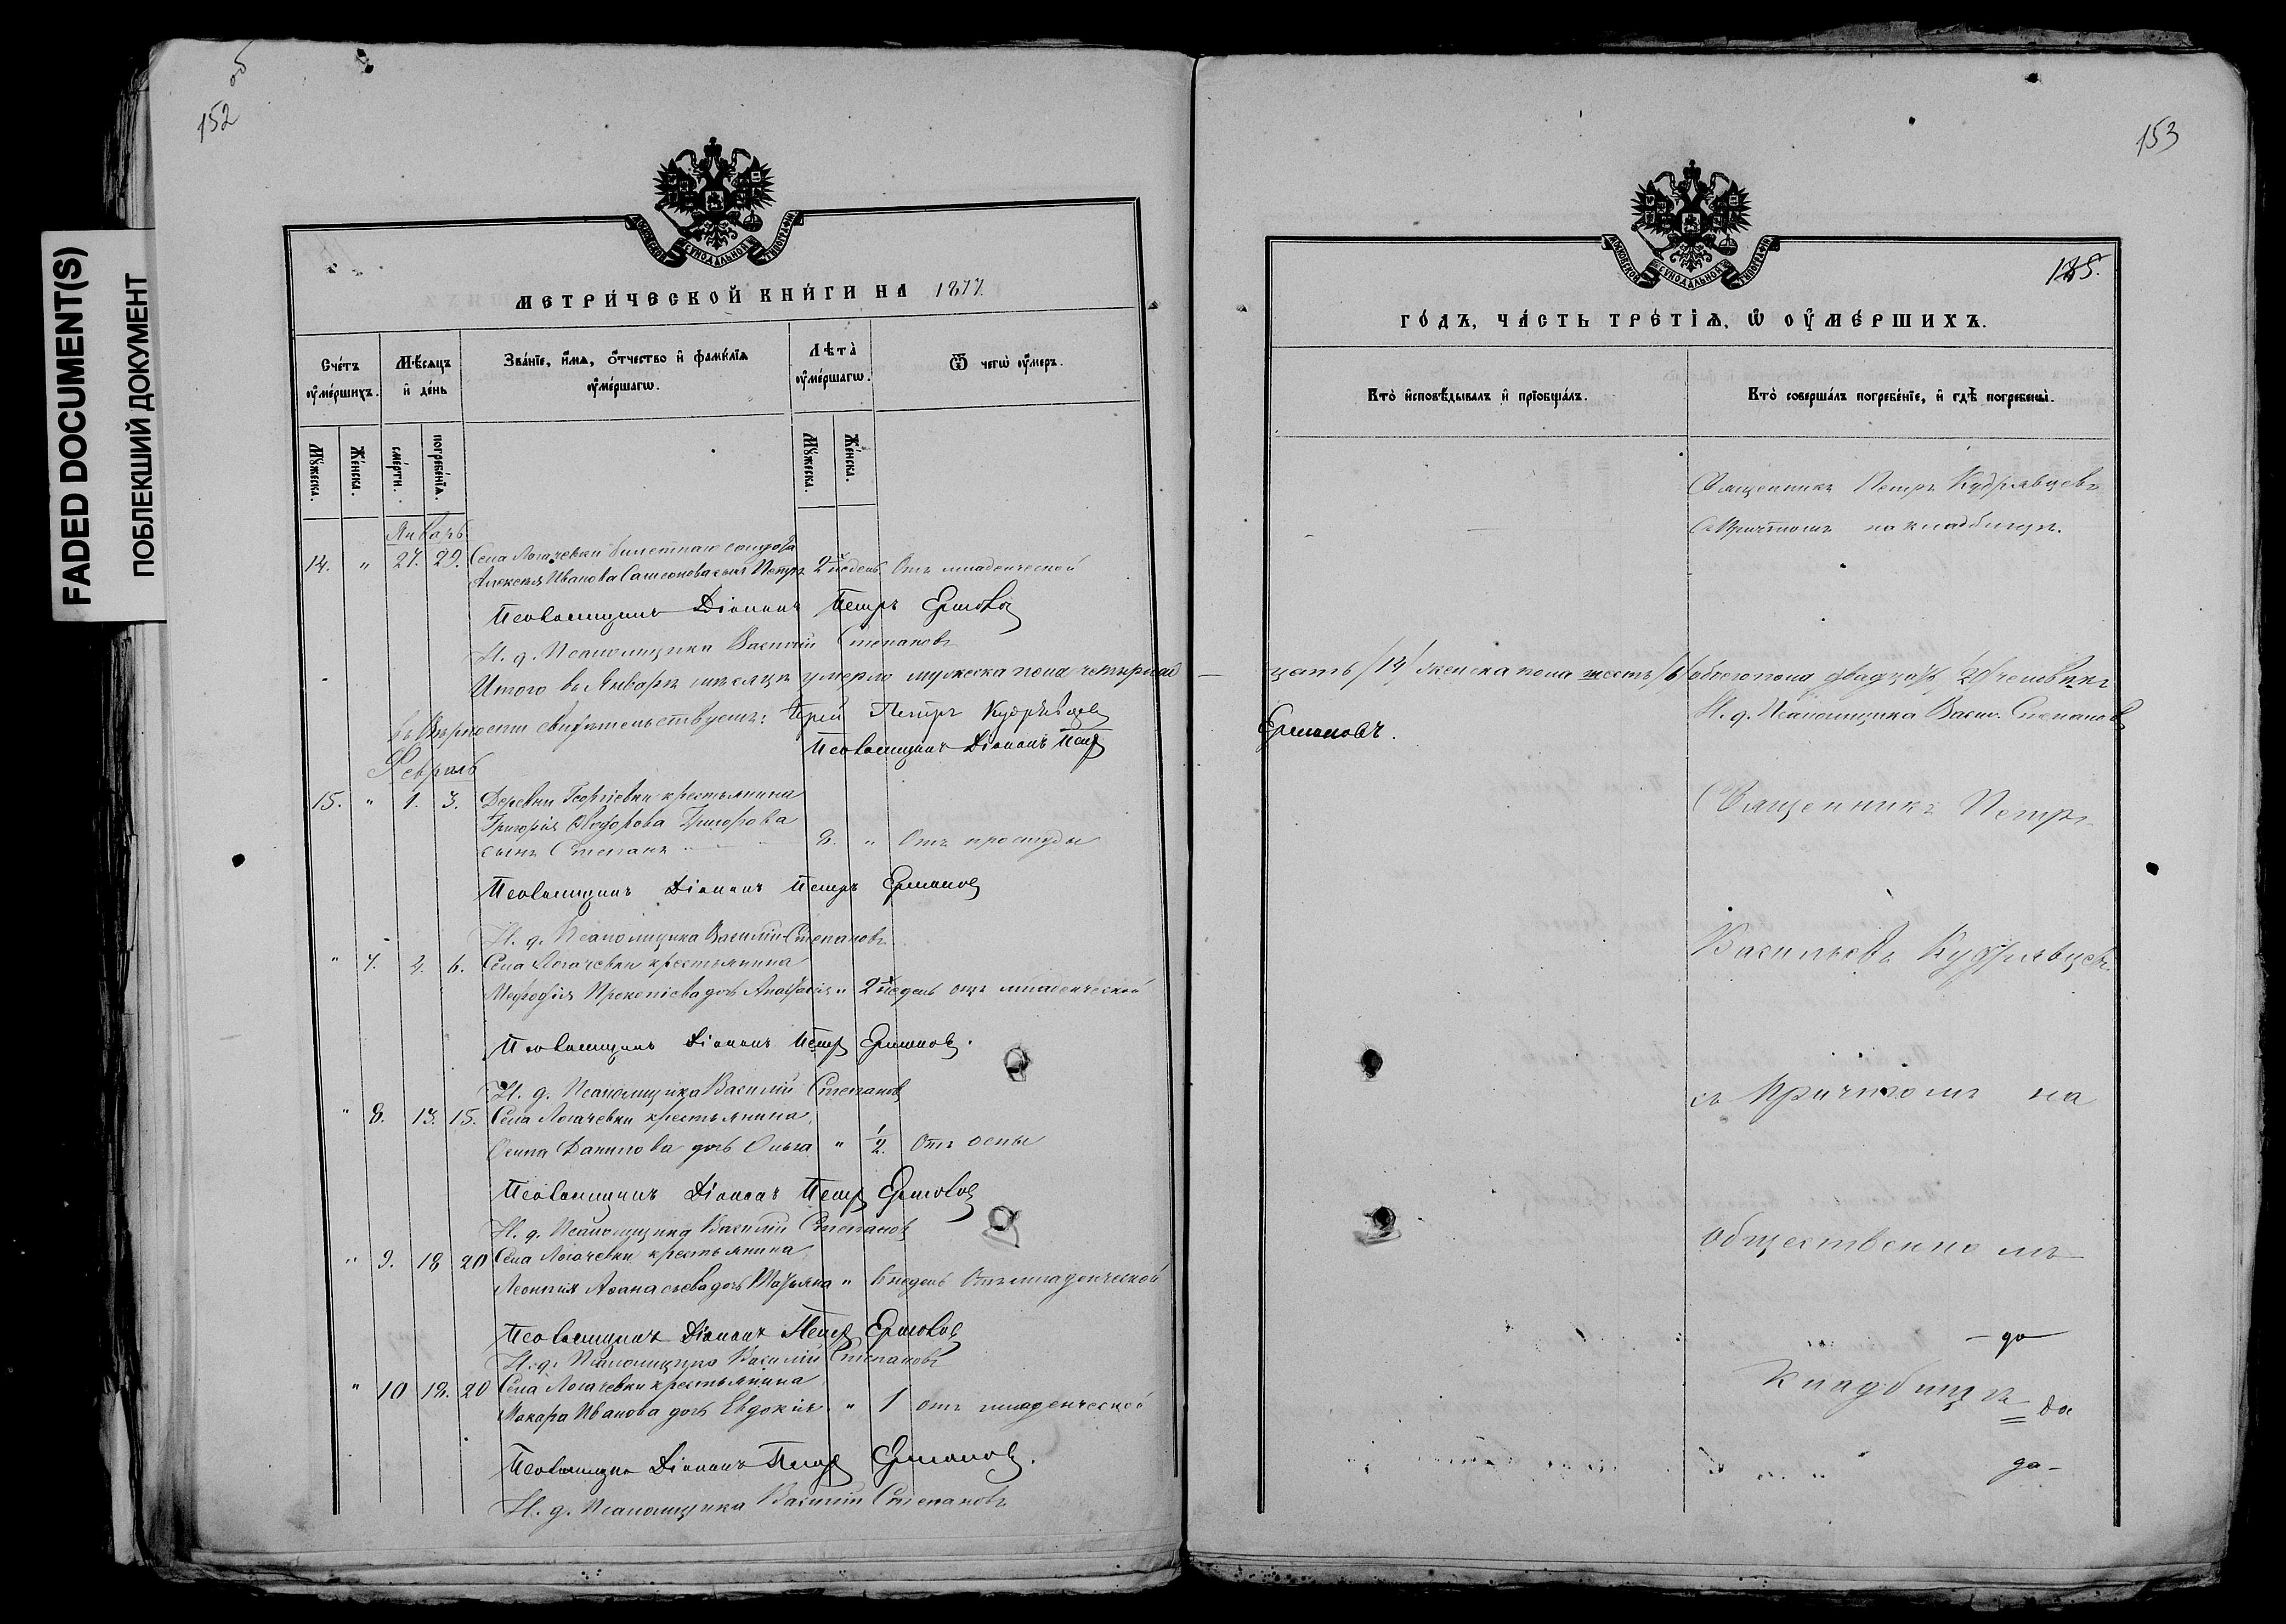 FADED DOCUMENT(S)
ПОБЛЕКШИЙ ДОКУМЕНТ
об
152
МЕТРИ́ЧЕСКОЙ КНИ́ГИ НА 1877
Сче́тъ ᲂу҆ме́ршихъ.
Мѣ́сяцъ и҆ де́нь
Зва́нїе, и҆́мѧ, ѻ҆́тчество и҆ фами́лїѧ ᲂу҆ме́ршагѡ.
Лѣта̀ ᲂу҆ме́ршагѡ.
Ѿ чегѡ̀ ᲂу҆́меръ.
Мꙋ́жеска.
Же́нска.
сме́рти.
погребе́нїѧ.
Мꙋ́жеска.
Же́нска.
Январь
14. " 27. 29. Села Логачевки билетнаго солдата
Алексѣя Иванова Самсонова сынъ Петръ 2 недель Отъ младенческой
Псаломщикъ Діаконъ Петръ Ермоловъ
И. д. Псаломщика Василій Степановъ
Итого въ Январѣ мѣсяцѣ умерло мужеска пола четырнад
въ вѣрности свидѣтельствуемъ: Іерей Петръ Кудрявцевъ
Псаломщикъ Діаконъ Петръ
Февраль
15. " 1. 3. Деревни Георгіевки крестьянина
Григорія Ѳедорова Григорова
сынъ Степанъ 8. " Отъ простуды
Псаломщикъ Діаконъ Петръ Ермоловъ
И. д. Псаломщика Василій Степановъ
" 7. 4. 6. Села Логачевки крестьянина
Меѳодія Прокопіева дочь Анастасія " 2 недель отъ младенческой
Псаломщикъ Діаконъ Петръ Ермоловъ.
И. д. Псаломщика Василій Степановъ
" 8. 13. 15. Села Логачевки крестьянина
Осипа Данилова дочь Ольга " 1/2. Отъ оспы
Псаломщикъ Діаконъ Петръ Ермоловъ
И. д. Псаломщика Василій Степановъ
" 9. 18 20 Села Логачевки крестьянина
Леонтія Аѳанасьева дочь Татьяна " 6 недель Отъ младенческой
Псаломщикъ Діаконъ Петръ Ермоловъ
И. д. Псаломщика Василій Степановъ
" 10 18. 20 Села Логачевки крестьянина
Макара Иванова дочь Евдокія " 1 отъ младенческой
Псаломщикъ Діаконъ Петръ Ермоловъ.
И. д. Псаломщика Василій Степановъ
153
185.
ГО́ДЪ, ЧА́СТЬ ТРЕ́ТЇѦ, Ѡ҆ ОУ҆МЕ́РШИХЪ.
Кто̀ и҆сповѣ́дывалъ и҆ прїѡбща́лъ.
Кто̀ соверша́лъ погребе́нїе, и҆ гдѣ̀ погребены̀.
Священникъ Петръ Кудрявцевъ
Съ Причтомъ на кладбищѣ.
цать /14/ женска пола шесть /6/ обоего пола двадцать /20/ человѣкъ
И. д. Псаломщика Васил. Степановъ
Ермоловъ.
Священникъ Петръ
Васильевъ Кудрявцевъ
съ Причтомъ на
общественномъ
да
Кладбищѣ
да
да